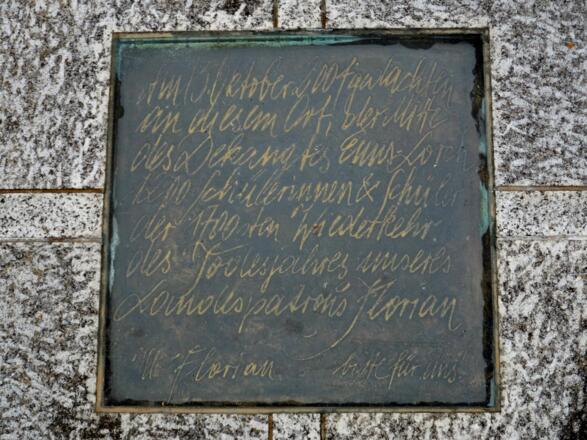 Am 13. Oktober 2004 gedachten
an diesem Ort, der Mitte
des Dekanates Enns-Lorch
Schülerinnen & Schüler
der 1700sten Wiederkehr
des Todesjahres unseres
Landespatrons Florian
Hl. Florian bitte für uns